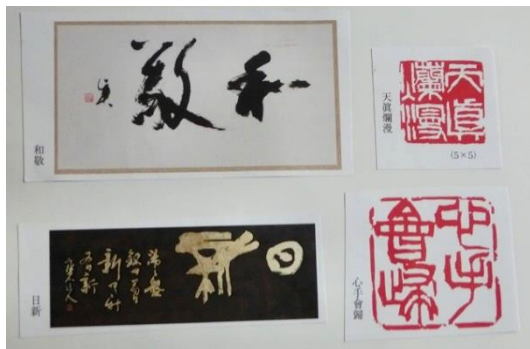 和敬
和敬
天眞爛漫
天眞爛漫
(5×5)
日新
日新
心手會歸
心手會歸